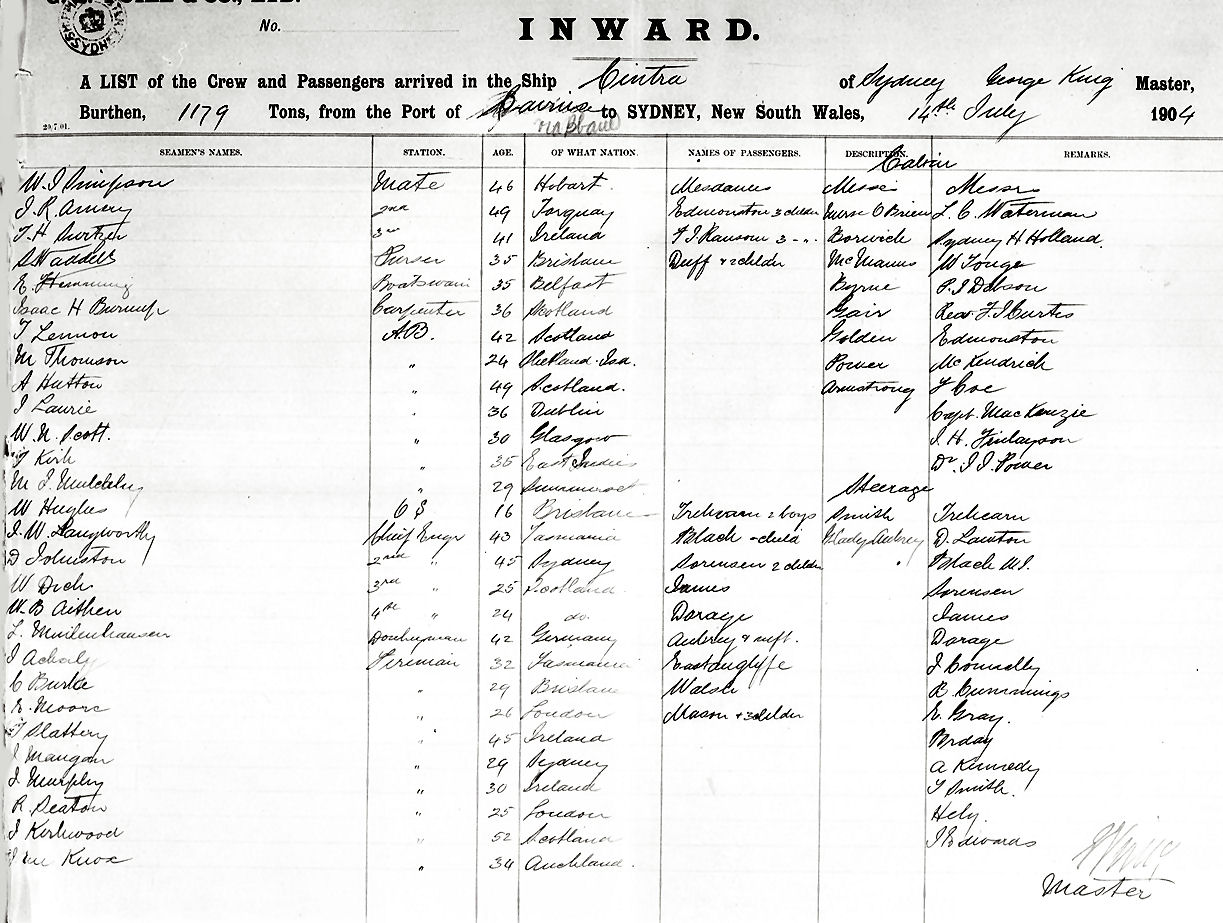 No.
INWARD.
A LIST of the Crew and Passengers arrived in the Ship Cintra of Sydney George King Master,
Burthen, 1179 Tons, from the Port of to SYDNEY, New South Wales, 14th July 1904
SEAMEN'S NAMES. STATION. AGE. OF WHAT NATION. NAMES OF PASSENGERS. DESCRIPTION. REMARKS.
Cabin
W. J Simpson Mate 46 Hobart. Mesdames Messrs
J. R. Amery 2nd 49 Torquay Edmonston 3 childer Nurse O'Brien L. C. Waterman
3rd 41 Ireland F. J. Ransom 3 " Borwick Sydney H Holland.
S Waddell Purser 35 Brisbane Duff & 2 childer McManus W Tonge
E. Hemming Boatswain 35 Belfast Byrne P. J Dobson
Isaac H Carpenter 36 Scotland Gair Rev F. J Curtis
T Lennon A.B. 42 Scotland Golden Edmonston
M Thomson " 24 Shetland Isd. Power McKendrich
A Hutton " 49 Scotland. Armstrong F Coe
J Laurie " 36 Dublin Capt. MacKenzie
W. N. Scott. " 30 Glasgow J. H. Finlayson
T Kirk " 35 East Indies Dr J J Power
M J " 29
Steerage
W Hughes 16 Brisbane Trehearn 2 boys Smith Trehearn
J. W. Langworthy Chief Engr 43 Tasmania Black - child Glady Aubrey D. Lawton
D Johnston 2nd " 45 Sydney Sorensen 2 childer Black W J.
W Dick 3rd " 25 Scotland James Sorensen
W. B Aitken 4th " 24 do. Dorage James
L. Donkeyman 42 Germany Aubrey & inft. Dorage
J Fireman 32 Tasmania J Connelly
C Burke " 29 Brisbane Walsh R Cummings
E. Moore " 26 London Mason + 3 childer E. Gray.
T Slattery " 45 Ireland
J Mangan " 29 Sydney A Kennedy
J. Murphy " 30 Ireland T Smith.
R Seaton " 25 London Hely.
J Kirkwood " 52 Scotland J Edwards
Knox " 34 Auckland.
Master